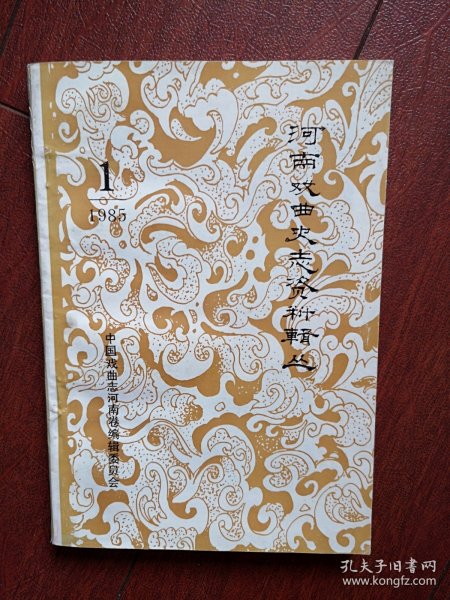 河南戏曲史志资料辑丛
1
1985
中国戏曲志河南卷编辑委员会
孔夫子旧书网
www.kongfz.com